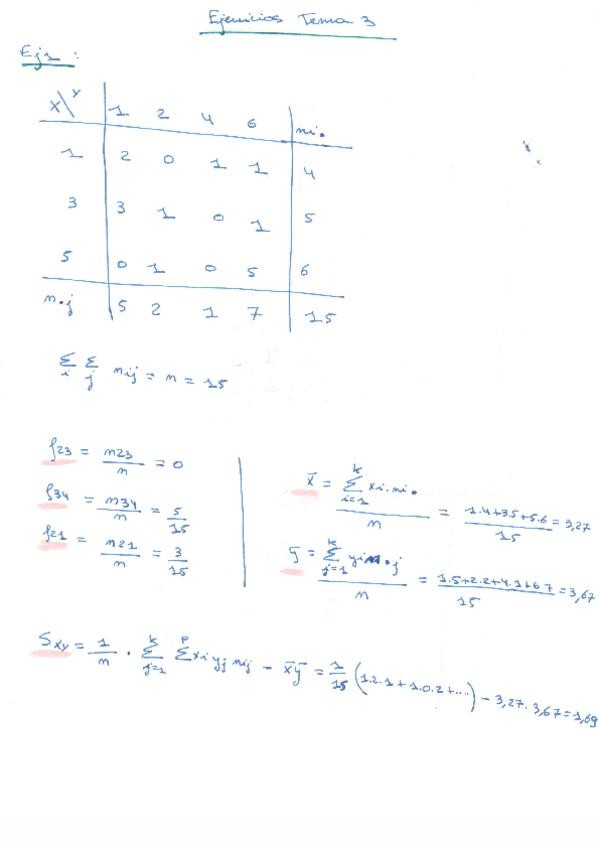 Ejercicios Tema 3
Ej1 :
X\Y 1 2 4 6 ni.
1 2 0 1 1 4
3 3 1 0 1 5
5 0 1 0 5 6
n.j 5 2 1 7 15
Σi Σj nij = n = 15
f23 = n23/n = 0
f34 = n34/n = 5/15
f21 = n21/n = 3/15
x̄ = Σ(i=1, k) xi.ni. / n = 1.4+3.5+5.6 / 15 = 3,27
ȳ = Σ(j=1, k) yi n.j / n = 1.5+2.2+4.1+6.7 / 15 = 3,67
Sxy = 1/n . Σ(j=1, k) Σ(p) xi yj nij - x̄ȳ = 1/15 (1.2.1 + 1.0.2 + ....) - 3,27. 3,67 = 1,69